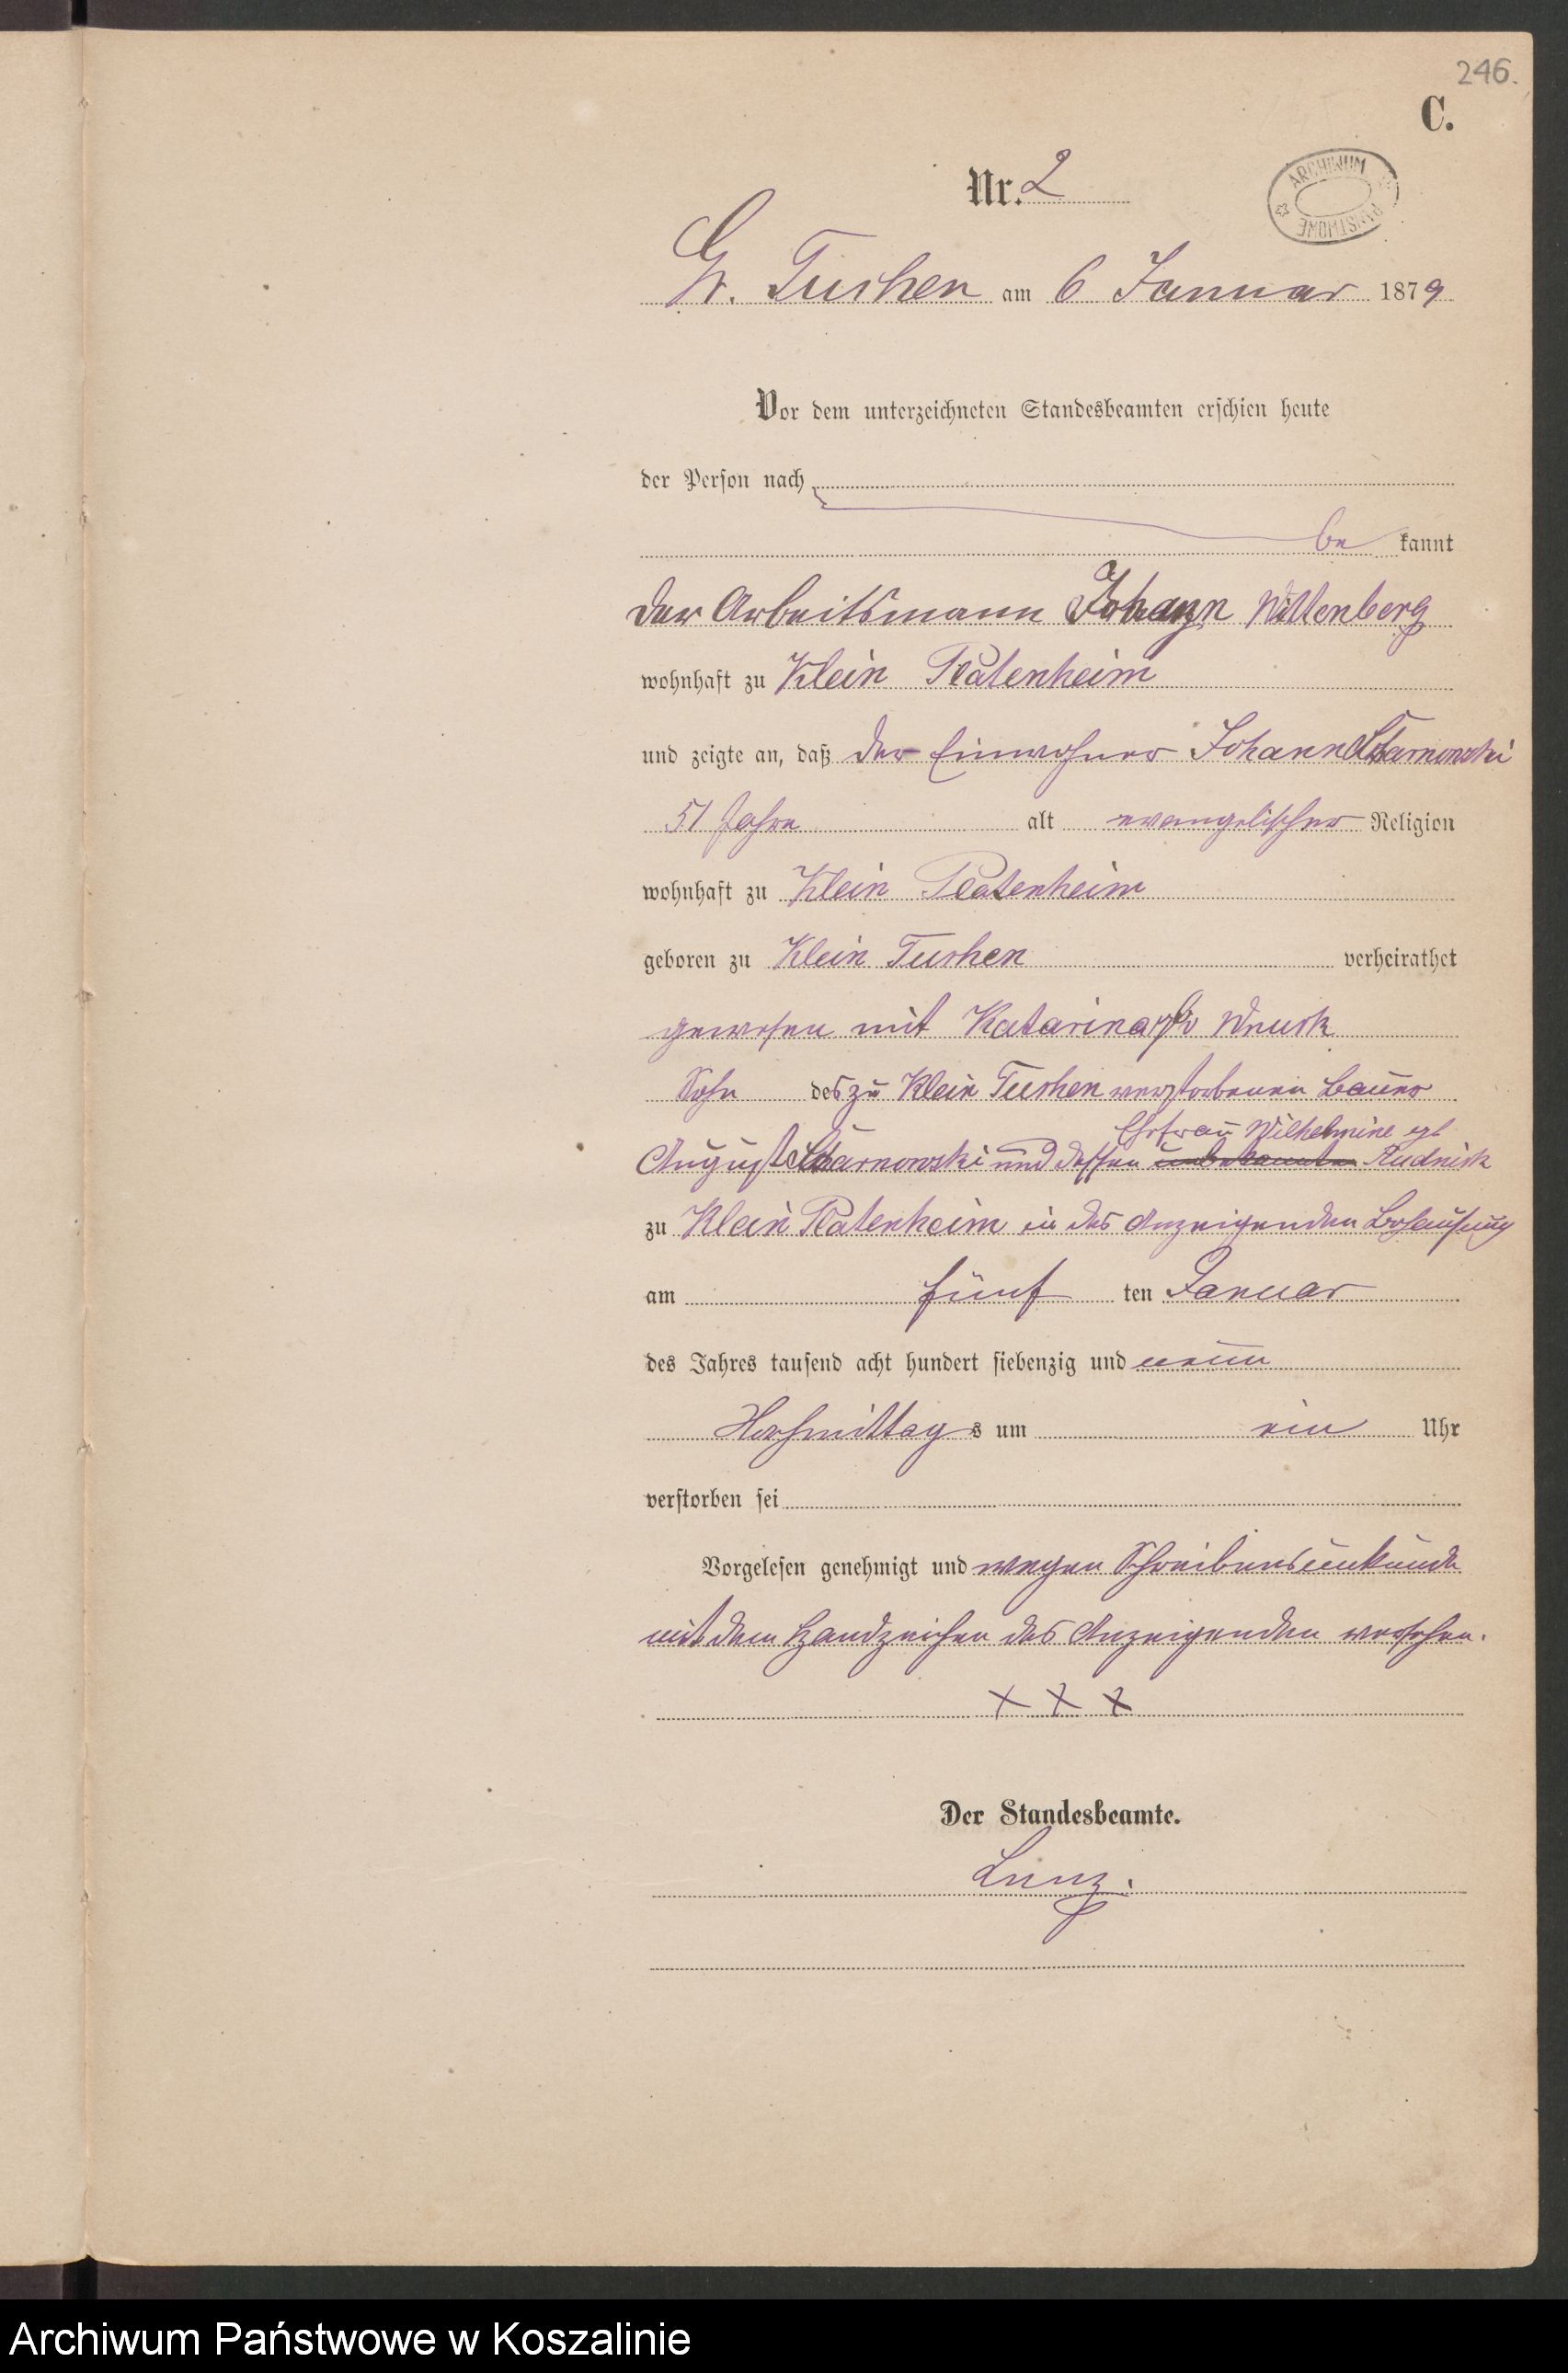 246.
C.
Nr. 2
ARCHIWUM PAŃSTWOWE
Gr. Tuchen am 6 Januar 1879
Vor dem unterzeichneten Standesbeamten erschien heute
der Person nach
be kannt
der Arbeitsmann Johann Wittenberg
wohnhaft zu Klein Platenheim
und zeigte an, daß der Einwohner Johann
51 Jahre alt evangelischer Religion
wohnhaft zu Klein Platenheim
geboren zu Klein Tuchen verheirathet
gewesen mit Katarina
Sohn des zu Klein Tuchen verstorbenen Bauer
Ehefrau Wilhelmine
August und dessen Rudnick
zu Klein Platenheim in des Anzeigenden Behausung
am fünf ten Januar
des Jahres tausend acht hundert siebenzig und neun
Nachmittag s um ein Uhr
verstorben sei
Vorgelesen genehmigt und wegen Schreibensunkunde
mit dem Handzeichen des Anzeigenden versehen.
X X X
Der Standesbeamte.
Archiwum Państwowe w Koszalinie